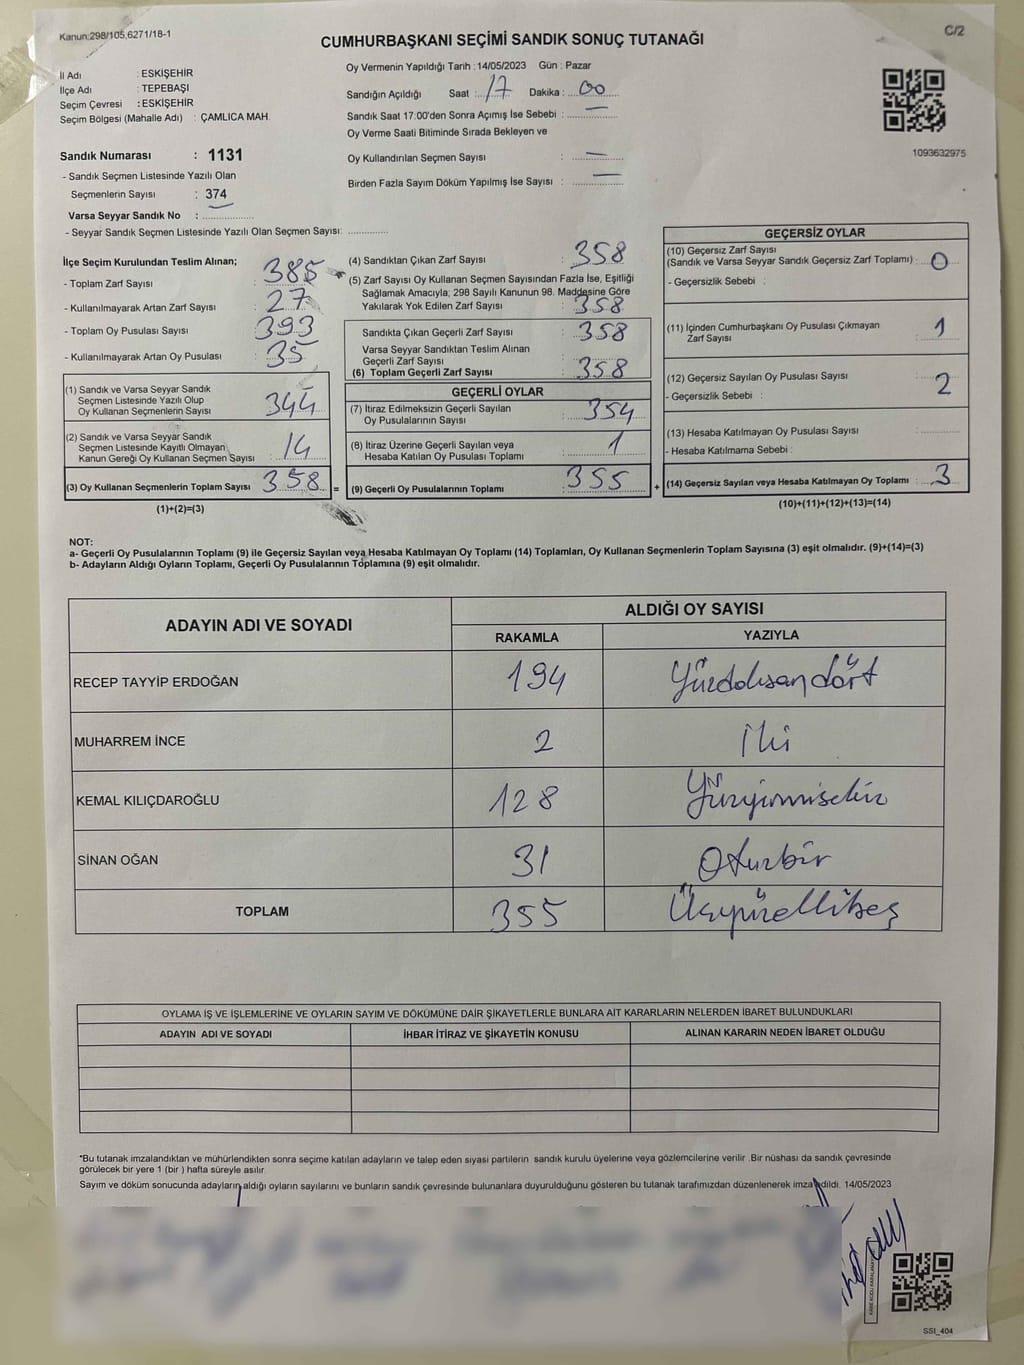 Kanun:298/105,6271/18-1
C/2
CUMHURBAŞKANI SEÇİMİ SANDIK SONUÇ TUTANAĞI
İl Adı : ESKİŞEHİR
İlçe Adı : TEPEBAŞI
Seçim Çevresi : ESKİŞEHİR
Seçim Bölgesi (Mahalle Adı) : ÇAMLICA MAH.
Sandık Numarası : 1131
- Sandık Seçmen Listesinde Yazılı Olan
Seçmenlerin Sayısı : 374
Varsa Seyyar Sandık No :
- Seyyar Sandık Seçmen Listesinde Yazılı Olan Seçmen Sayısı:
Oy Vermenin Yapıldığı Tarih : 14/05/2023 Gün : Pazar
Sandığın Açıldığı Saat : 17 Dakika : 00
Sandık Saat 17:00'den Sonra Açımış İse Sebebi : —
Oy Verme Saati Bitiminde Sırada Bekleyen ve
Oy Kullandırılan Seçmen Sayısı : —
Birden Fazla Sayım Döküm Yapılmış İse Sayısı : —
1093632975
İlçe Seçim Kurulundan Teslim Alınan;
- Toplam Zarf Sayısı : 385
- Kullanılmayarak Artan Zarf Sayısı : 27
- Toplam Oy Pusulası Sayısı : 393
- Kullanılmayarak Artan Oy Pusulası : 35
(1) Sandık ve Varsa Seyyar Sandık
Seçmen Listesinde Yazılı Olup
Oy Kullanan Seçmenlerin Sayısı : 344
(2) Sandık ve Varsa Seyyar Sandık
Seçmen Listesinde Kayıtlı Olmayan
Kanun Gereği Oy Kullanan Seçmen Sayısı : 14
(3) Oy Kullanan Seçmenlerin Toplam Sayısı : 358 =
(1)+(2)=(3)
(4) Sandıktan Çıkan Zarf Sayısı : 358
(5) Zarf Sayısı Oy Kullanan Seçmen Sayısından Fazla İse, Eşitliği
Sağlamak Amacıyla; 298 Sayılı Kanunun 98. Maddesine Göre
Yakılarak Yok Edilen Zarf Sayısı : 358
Sandıkta Çıkan Geçerli Zarf Sayısı : 358
Varsa Seyyar Sandıktan Teslim Alınan
Geçerli Zarf Sayısı
(6) Toplam Geçerli Zarf Sayısı : 358
GEÇERLİ OYLAR
(7) İtiraz Edilmeksizin Geçerli Sayılan
Oy Pusulalarının Sayısı : 354
(8) İtiraz Üzerine Geçerli Sayılan veya
Hesaba Katılan Oy Pusulası Toplamı : 1
(9) Geçerli Oy Pusulalarının Toplamı : 355 +
GEÇERSİZ OYLAR
(10) Geçersiz Zarf Sayısı
(Sandık ve Varsa Seyyar Sandık Geçersiz Zarf Toplamı) : 0
- Geçersizlik Sebebi :
(11) İçinden Cumhurbaşkanı Oy Pusulası Çıkmayan
Zarf Sayısı : 1
(12) Geçersiz Sayılan Oy Pusulası Sayısı : 2
- Geçersizlik Sebebi :
(13) Hesaba Katılmayan Oy Pusulası Sayısı :
- Hesaba Katılmama Sebebi :
(14) Geçersiz Sayılan veya Hesaba Katılmayan Oy Toplamı : 3
(10)+(11)+(12)+(13)=(14)
NOT:
a- Geçerli Oy Pusulalarının Toplamı (9) ile Geçersiz Sayılan veya Hesaba Katılmayan Oy Toplamı (14) Toplamları, Oy Kullanan Seçmenlerin Toplam Sayısına (3) eşit olmalıdır. (9)+(14)=(3)
b- Adayların Aldığı Oyların Toplamı, Geçerli Oy Pusulalarının Toplamına (9) eşit olmalıdır.
ADAYIN ADI VE SOYADI
ALDIĞI OY SAYISI
RAKAMLA YAZIYLA
RECEP TAYYİP ERDOĞAN 194 Yüzdoksandört
MUHARREM İNCE 2 İki
KEMAL KILIÇDAROĞLU 128 Yüzyirmisekiz
SİNAN OĞAN 31 Otuzbir
TOPLAM 355 Üçyüzellibeş
OYLAMA İŞ VE İŞLEMLERİNE VE OYLARIN SAYIM VE DÖKÜMÜNE DAİR ŞİKAYETLERLE BUNLARA AİT KARARLARIN NELERDEN İBARET BULUNDUKLARI
ADAYIN ADI VE SOYADI İHBAR İTİRAZ VE ŞİKAYETİN KONUSU ALINAN KARARIN NEDEN İBARET OLDUĞU
*Bu tutanak imzalandıktan ve mühürlendikten sonra seçime katılan adayların ve talep eden siyasi partilerin sandık kurulu üyelerine veya gözlemcilerine verilir .Bir nüshası da sandık çevresinde
görülecek bir yere 1 (bir ) hafta süreyle asılır.
Sayım ve döküm sonucunda adayların aldığı oyların sayılarını ve bunların sandık çevresinde bulunanlara duyurulduğunu gösteren bu tutanak tarafımızdan düzenlenerek imza edildi. 14/05/2023
SSI_404